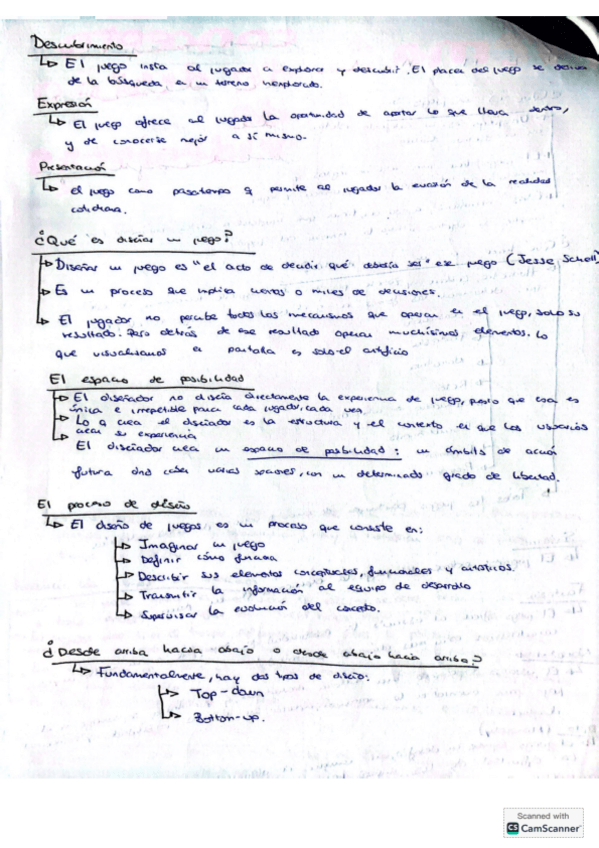 Descubrimiento
↳ El juego insta al jugador a explorar y descubrir. El placer del juego se deriva
de la búsqueda, en un terreno inexplorado.
Expresión
↳ El juego ofrece al jugador la oportunidad de aportar lo que lleva dentro,
y de conocerse mejor a sí mismo.
Presentación
↳ el juego como pasatiempo q permite al jugador la evasión de la realidad
cotidiana.
¿Qué es diseñar un juego?
↳ Diseñar un juego es "el acto de decidir qué debería ser" ese juego (Jesse Schell)
↳ Es un proceso que implica cientos o miles de decisiones.
↳ El jugador no percibe todos los mecanismos que operan en el juego, solo su
resultado. Pero detrás de ese resultado operan muchísimos elementos. Lo
que visualizamos en pantalla es solo el artificio
El espacio de posibilidad
↳ El diseñador no diseña directamente la experiencia de juego, puesto que esa es
única e irrepetible para cada jugador, cada vez
↳ Lo q crea el diseñador es la estructura y el contexto en que los usuarios
crean su experiencia
El diseñador crea un espacio de posibilidad: un ámbito de acción
futura dnd caben varias sesiones, con un determinado grado de libertad.
El proceso de diseño
↳ El diseño de juegos es un proceso que consiste en:
↳ Imaginar un juego
↳ Definir cómo funciona
↳ Describir sus elementos conceptuales, funcionales y artísticos.
↳ Transmitir la información al equipo de desarrollo
↳ Supervisar la evolución del concepto.
¿Desde arriba hacia abajo o desde abajo hacia arriba?
↳ Fundamentalmente, hay dos tipos de diseño:
↳ Top-down
↳ Bottom-up.
Scanned with
CS CamScanner